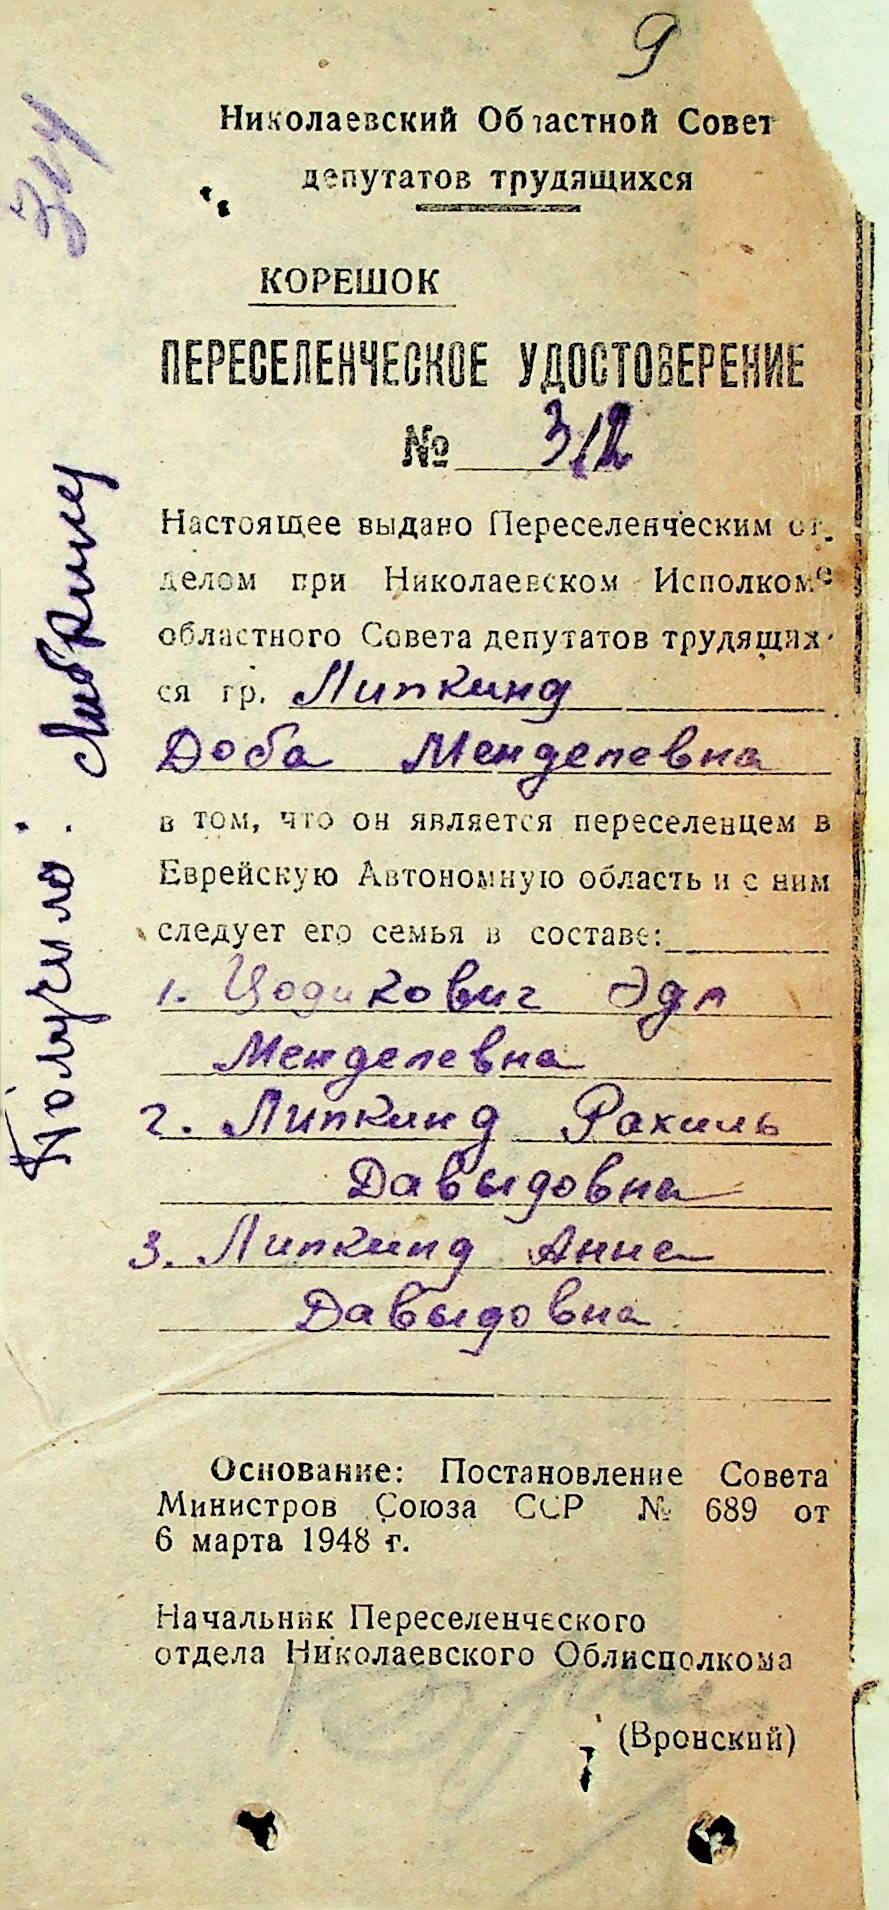 9
314
Николаевский Областной Совет
депутатов трудящихся
КОРЕШОК
ПЕРЕСЕЛЕНЧЕСКОЕ УДОСТОВЕРЕНИЕ
№ 312
Настоящее выдано Переселенческим от-
делом при Николаевском Исполкоме
областного Совета депутатов трудящих-
ся гр. Липкинд
Доба Менделевна
в том, что он является переселенцем в
Еврейскую Автономную область и с ним
следует его семья в составе:
1. Цодикович Эдл
Менделевна
2. Липкинд Рахиль
Давыдовна
3. Липкинд Анна
Давыдовна
Основание: Постановление Совета
Министров Союза ССР № 689 от
6 марта 1948 г.
Начальник Переселенческого
отдела Николаевского Облисполкома
(Вронский)
Получила.